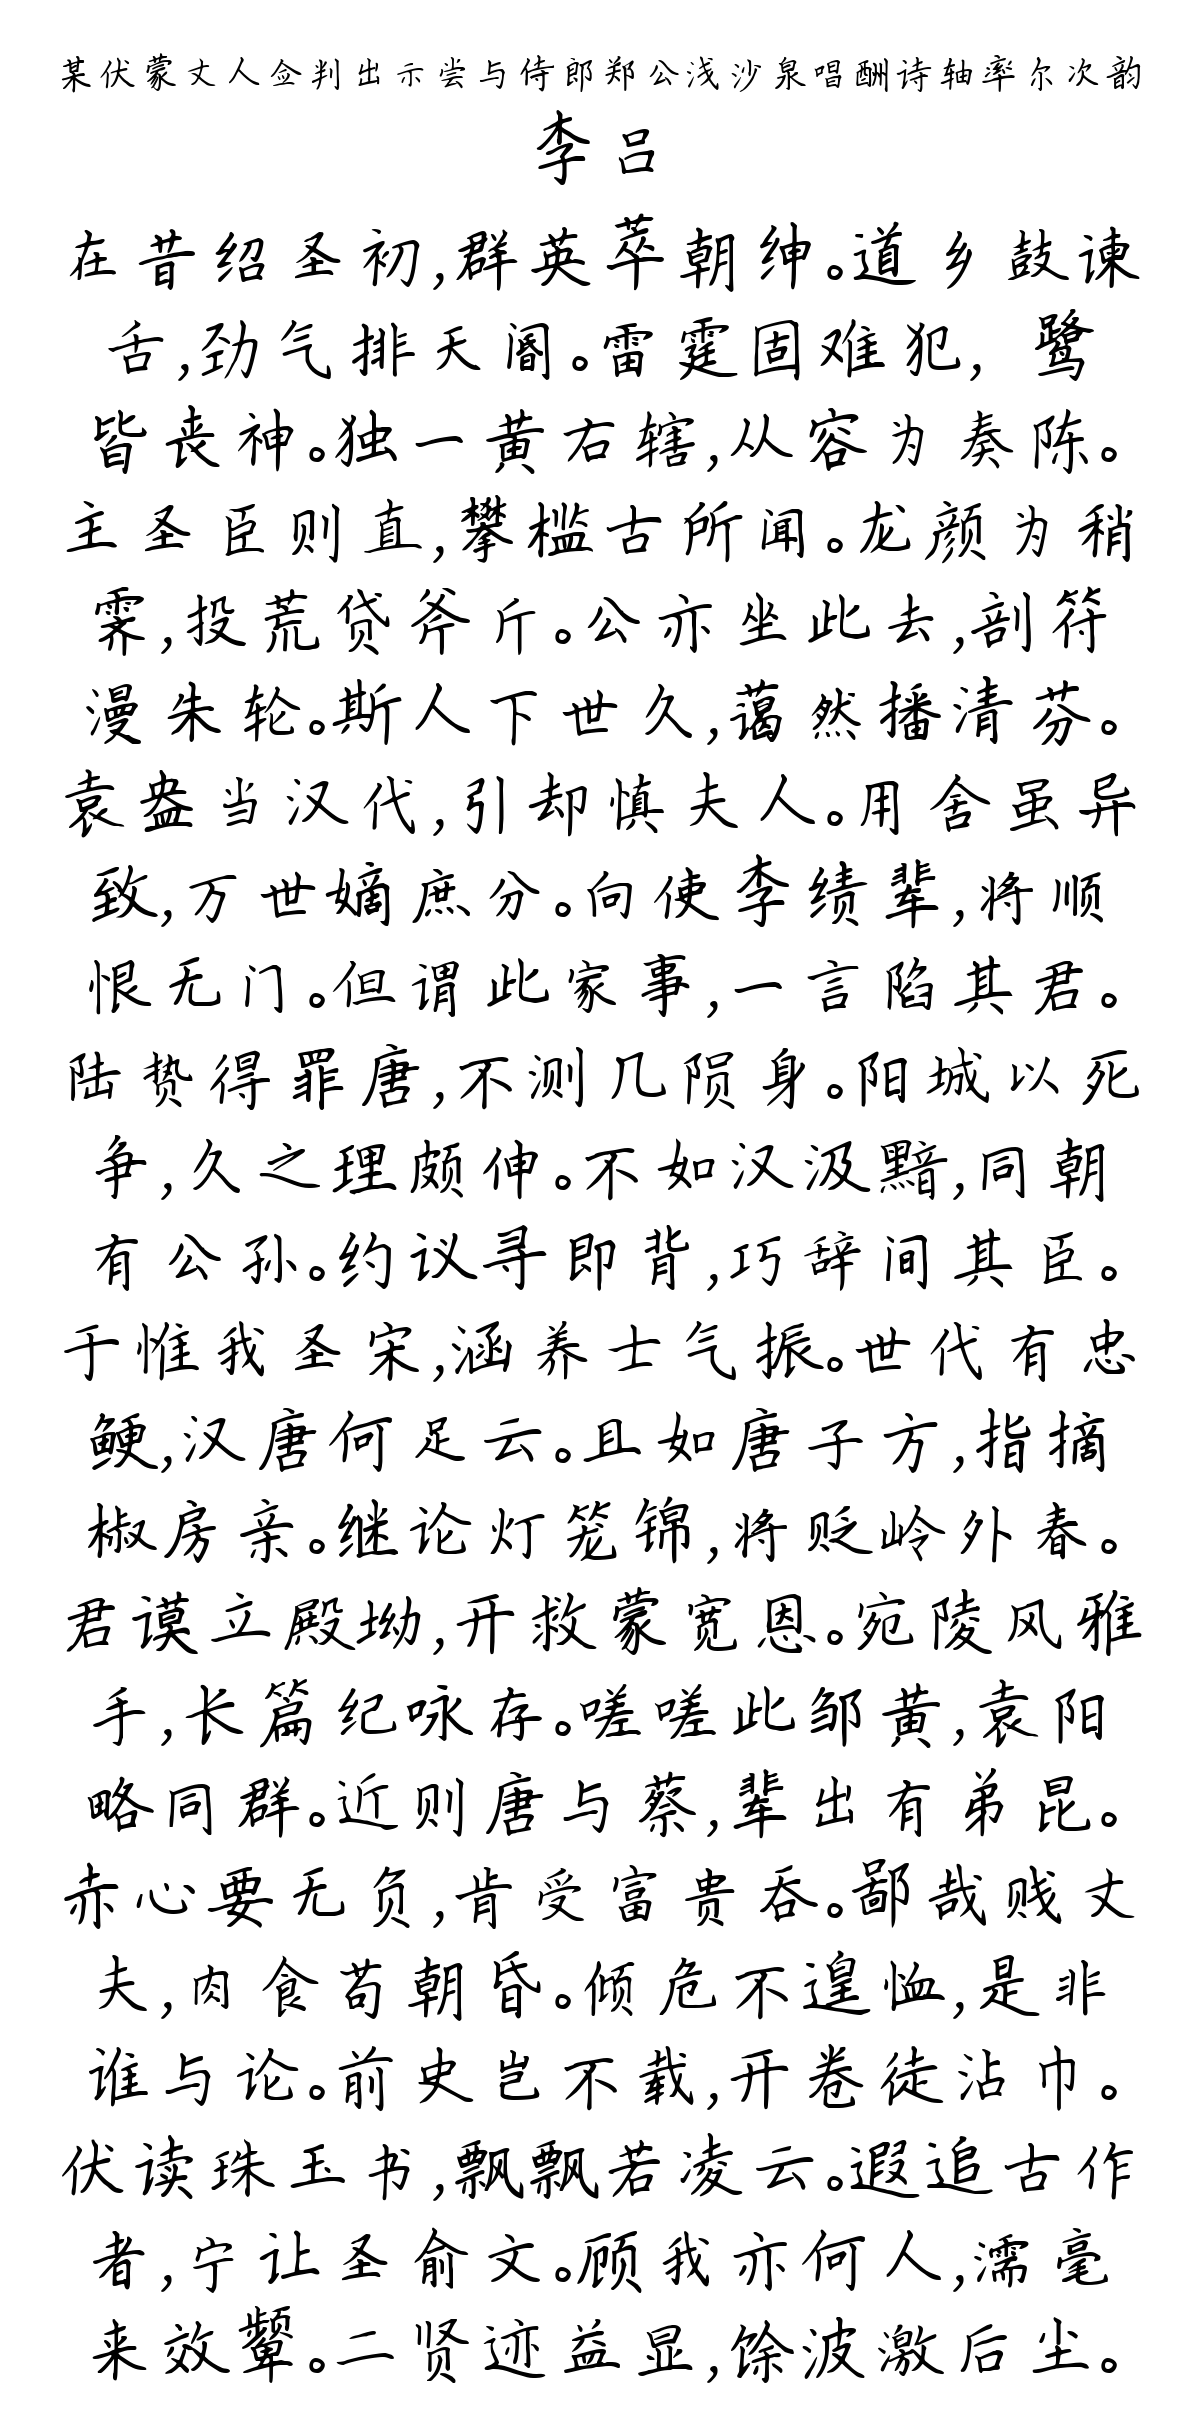 某伏蒙丈人佥判出示尝与侍郎郑公浅沙泉唱酬诗轴率尔次韵
李吕
在昔绍圣初,群英萃朝绅。道乡鼓谏
舌,劲气排天阍。雷霆固难犯, 鹭
皆丧神。独一黄右辖,从容为奏陈。
主圣臣则直,攀槛古所闻。龙颜为稍
霁,投荒贷斧斤。公亦坐此去,剖符
漫朱轮。斯人下世久,蔼然播清芬。
袁盎当汉代,引却慎夫人。用舍虽异
致,万世嫡庶分。向使李绩辈,将顺
恨无门。但谓此家事,一言陷其君。
陆贽得罪唐,不测几陨身。阳城以死
争,久之理颇伸。不如汉汲黯,同朝
有公孙。约议寻即背,巧辞间其臣。
于惟我圣宋,涵养士气振。世代有忠
鲠,汉唐何足云。且如唐子方,指摘
椒房亲。继论灯笼锦,将贬岭外春。
君谟立殿坳,开救蒙宽恩。宛陵风雅
手,长篇纪咏存。嗟嗟此邹黄,袁阳
略同群。近则唐与蔡,辈出有弟昆。
赤心要无负,肯受富贵吞。鄙哉贱丈
夫,肉食苟朝昏。倾危不遑恤,是非
谁与论。前史岂不载,开卷徒沾巾。
伏读珠玉书,飘飘若凌云。遐追古作
者,宁让圣俞文。顾我亦何人,濡毫
来效颦。二贤迹益显,馀波激后尘。